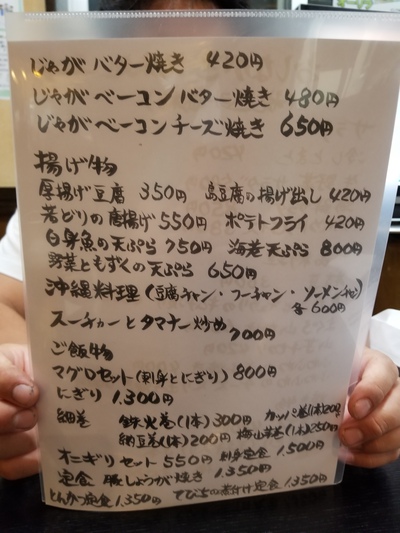 じゃがバター焼き 420円
じゃがベーコンバター焼き 480円
じゃがベーコンチーズ焼き 650円
揚げ物
厚揚げ豆腐 350円 島豆腐の揚げ出し 420円
若どりの唐揚げ 550円 ポテトフライ 420円
白身魚の天ぷら 750円 海老天ぷら 800円
野菜ともずくの天ぷら 650円
沖縄料理(豆腐チャン・フーチャン・ソーメンチャン)
各600円
スーチカーとタマナー炒め
700円
ご飯物
マグロセット(刺身とにぎり) 800円
にぎり 1.300円
細巻 鉄火巻(1本) 300円 カッパ巻(1本)200
納豆巻(1本) 200円 梅山芋巻(1本)250円
オニギリセット 550円 刺身定食 1.500円
定食 豚しょうが焼き 1.350円
とんかつ定食 1.350円 てびちの煮付け定食 1.350